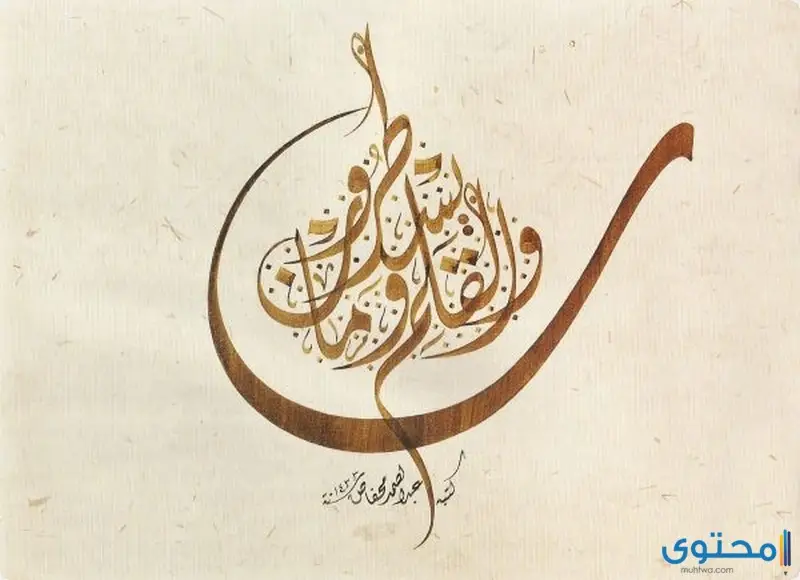 ن والقلم وما يسطرون
كتبه عبدالصمد محفاض سنة ١٤٣٣
محتوى
muhtwa.com